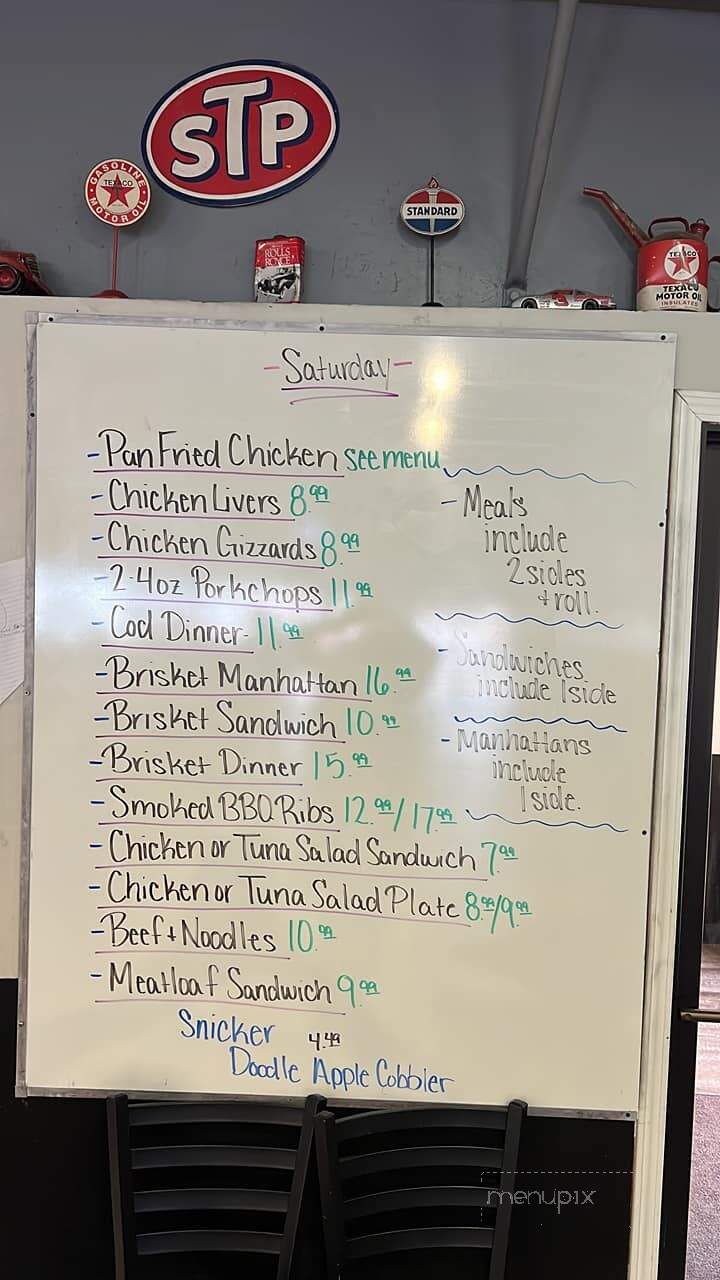 STP
GASOLINE
TEXACO
MOTOR OIL
STANDARD
ROLLS
ROYCE
TEXACO
TEXACO
MOTOR OIL
INSULATED
-Saturday-
-Pan Fried Chicken see menu
-Chicken Livers 8.99
-Chicken Gizzards 8.99
-2-4oz Porkchops 11.99
-Cod Dinner- 11.99
-Brisket Manhattan 16.99
-Brisket Sandwich 10.99
-Brisket Dinner 15.99
-Smoked BBQ Ribs 12.99/17.99
-Chicken or Tuna Salad Sandwich 7.99
-Chicken or Tuna Salad Plate 8.99/9.99
-Beef + Noodles 10.99
-Meatloaf Sandwich 9.99
Snicker 4.49
Doodle Apple Cobbler
-Meals
include
2 sides
+ roll.
-Sandwiches
include 1 side
-Manhattans
include
1 side.
menupix